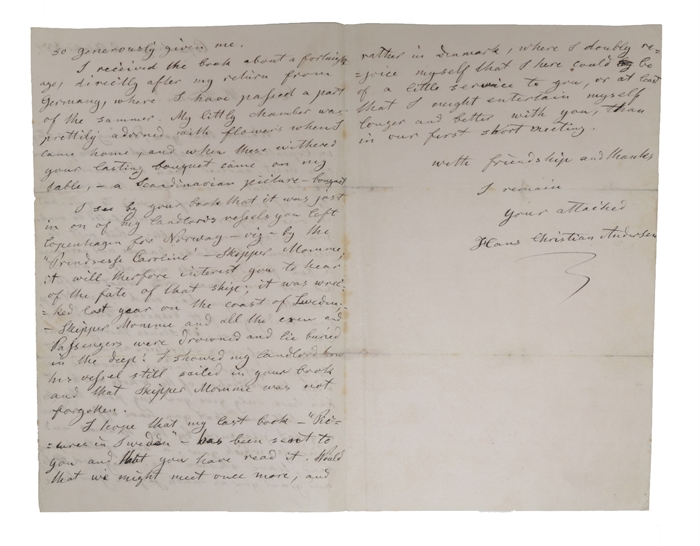 so generously given me.
I received the book about a fortnight
ago, directly after my return from
Germany, where I have passed a part
of the summer. My littly chamber was
prettily adorned with flowers when I
came home, and when these withered
your lasting bouquet came on my
table, – a Scandinavian picture-bouquet
I see by your book that it was just
in on of my landlords vessels you left
Copenhagen for Norway – viz – by the
"Prindsesse Caroline" – Skipper Mommе,
it will therfore interest you to hear
of the fate of that ship; it was wrec-
=ked last year on the coast of Sweden,
– Skipper Momme and all the crew and
Passengers were drowned and lie buried
in the deep! I showed my landlord how
his vessel still sailed in your book
and that Skipper Momme was not
forgotten.
I hope that my last book – "Pic-
=tures in Sweden" – has been sent to
you and that you have read it. Would
that we might meet once more, and
rather in Denmark, where I doubly re-
=joice myself that I here could be
of a little service to you, or at least
that I might entertain myself
longer and better with you, than
in our first short meeting.
with friendship and thanks
I remain
your attached
Hans Christian Andersen